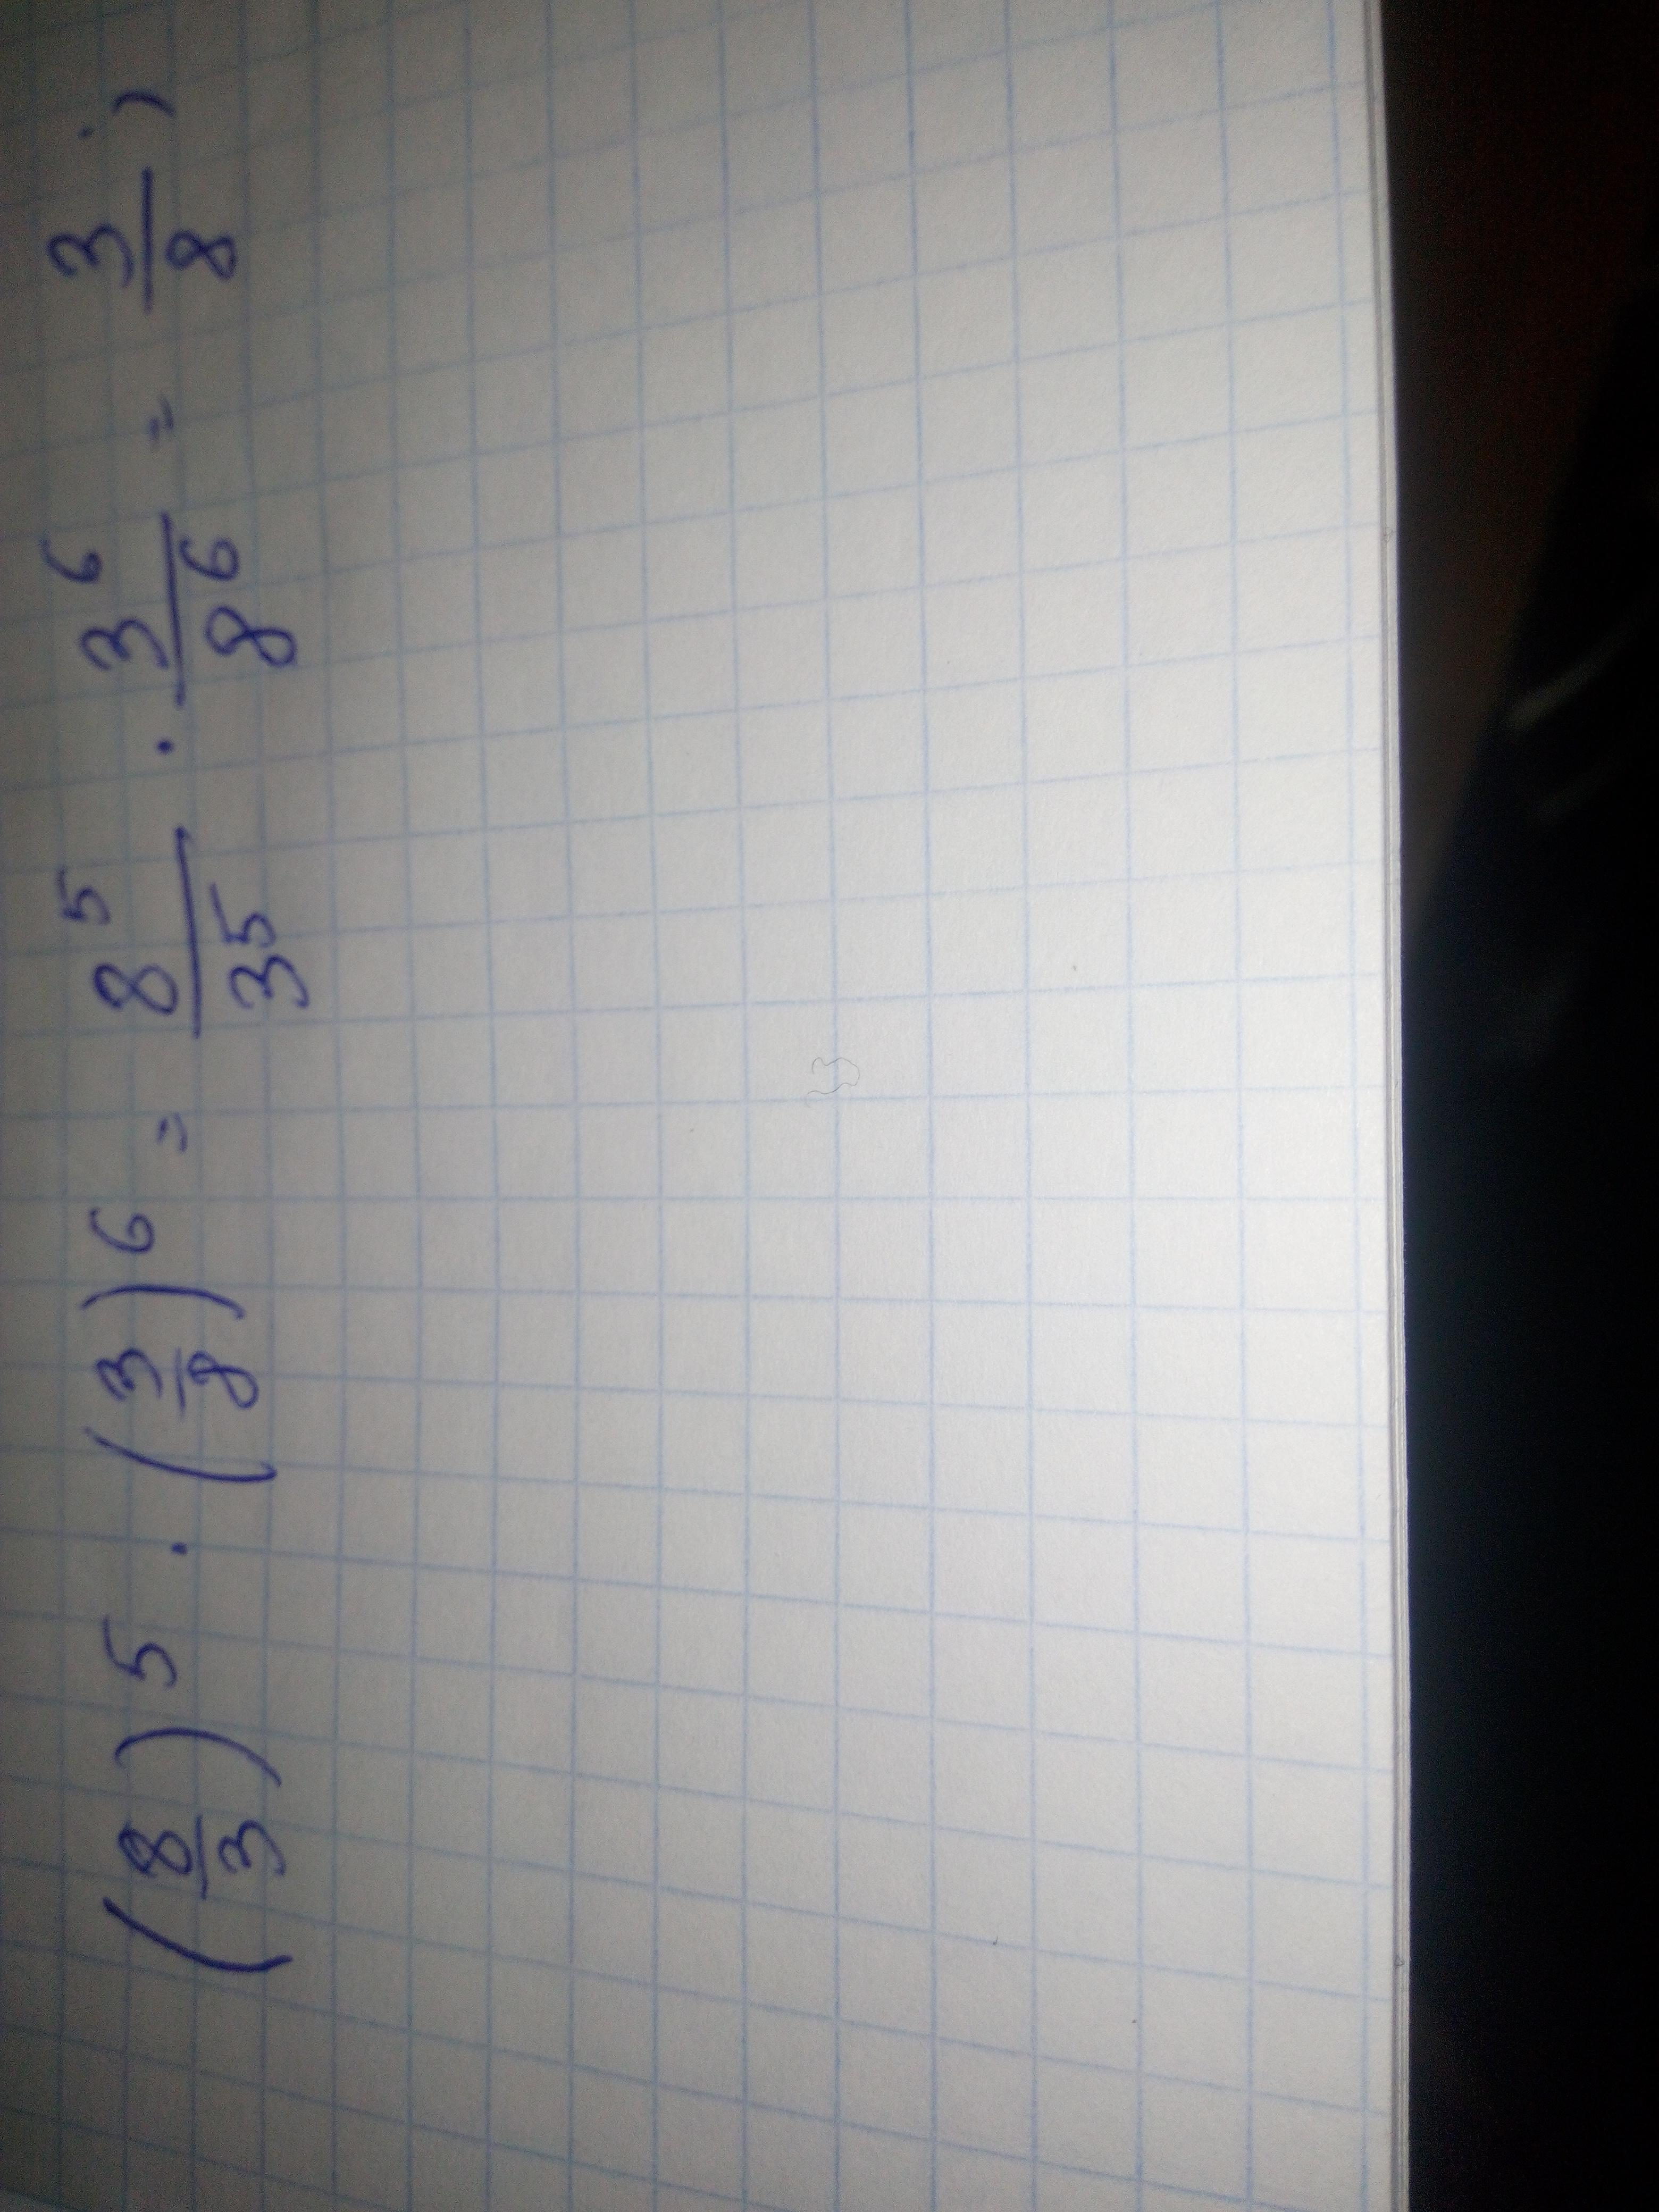 (8/3)^5 · (3/8)^6 = 8^5/3^5 · 3^6/8^6 = 3/8 ;